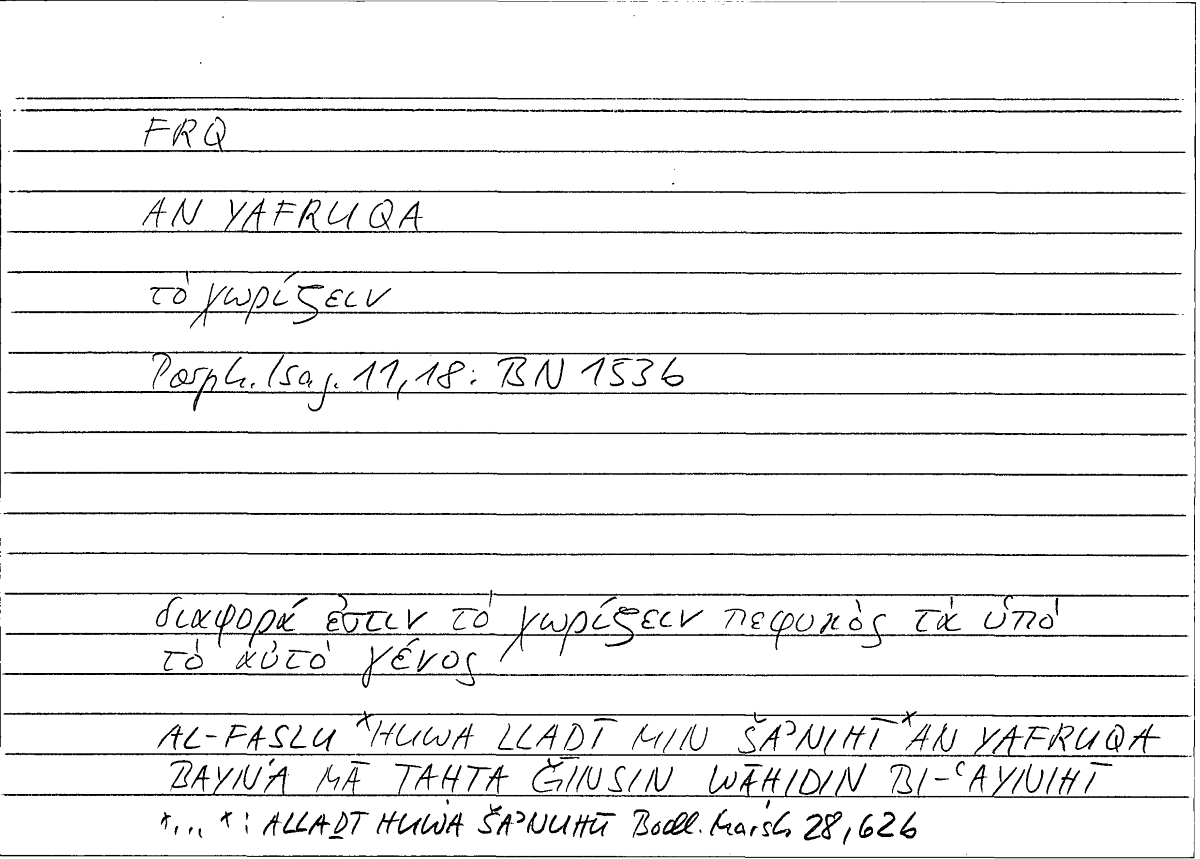 FRQ
AN YAFRUQA
τὸ χωρίζειν
Porph. Isag. 11,18: BN 153b
διαφορά ἐστιν τὸ χωρίζειν πεφυκὸς τὰ ὑπὸ
τὸ αὐτὸ γένος
AL-FASLU *HUWA LLADĪ MIN ŠAʾNIHĪ *AN YAFRUQA
BAYNA MĀ TAHTA ǦINSIN WĀHIDIN BI-ʿAYNIHĪ
*...*: ALLAḎĪ HUWA ŠAʾNUHŪ Bodl. Marsh 28,62b